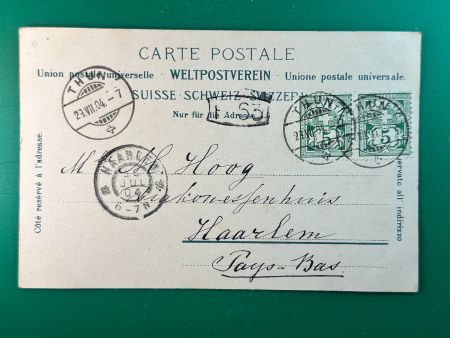 CARTE POSTALE
Union postale universelle · WELTPOSTVEREIN · Unione postale universale.
SUISSE · SCHWEIZ · SVIZZERA
Nur für die Adresse
THUN
23.VII.04.-7
63
THUN
THUN
5
5
Côté réservé à l'adresse.
HAARLEM
JUL
04
6-7N
M Hoog
Diakonessenhuis
Haarlem
Pays-Bas